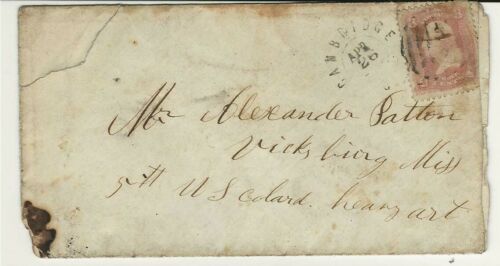 CAMBRIDGE
APR
26
Mr Alexander Patton
Vicksburg Miss
5th U S colard. heavy art